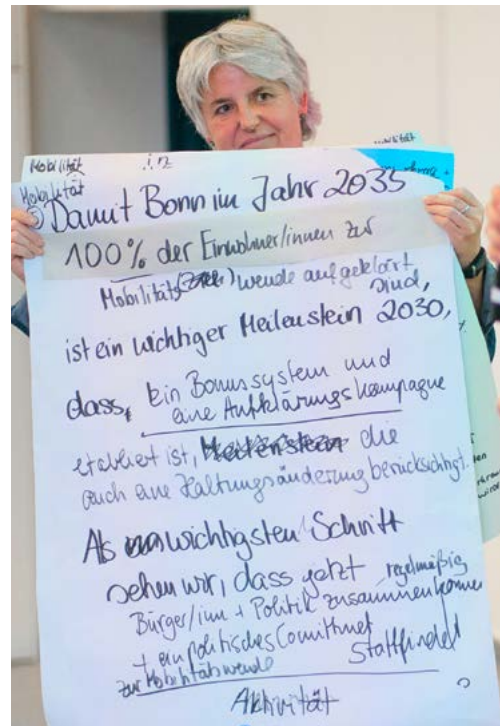 Mobilität in
Mobilität
Mobilität
⑤ Damit Bonn im Jahr 2035
100% der Einwohner/innen zur
Mobilitäts wende aufgeklärt
sind,
ist ein wichtiger Meilenstein 2030,
dass, ein Bonussystem und
eine Aufklärungskampagne
etabliert ist, Meilenstein die
auch eine Haltungsänderung berücksichtigt.
Als wichtigsten Schritt
sehen wir, dass jetzt regelmäßig
Bürger/inn + Politik zusammenkommen
+ ein politisches Comithmet
zur Mobilitätswende stattfindet
Aktivität